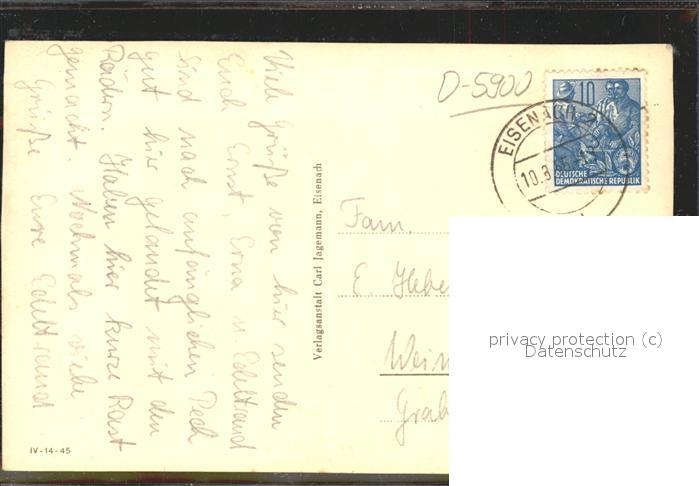 Viele Grüße von hier senden
Euch Ernst, Erna u Edeltraud
sind nach anfänglichen Pech
gut hier gelandet mit den
Rädern. Haben hier kurze Rast
gemacht. Nochmals viele
Grüße Eure Edeltraud
IV-14-45
Verlagsanstalt Carl Jagemann, Eisenach
D-5900
10
DEUTSCHE
DEMOKRATISCHE REPUBLIK
EISENACH 2
10.8.
Fam.
E. Hebe
Weim
Grab
privacy protection (c)
Datenschutz